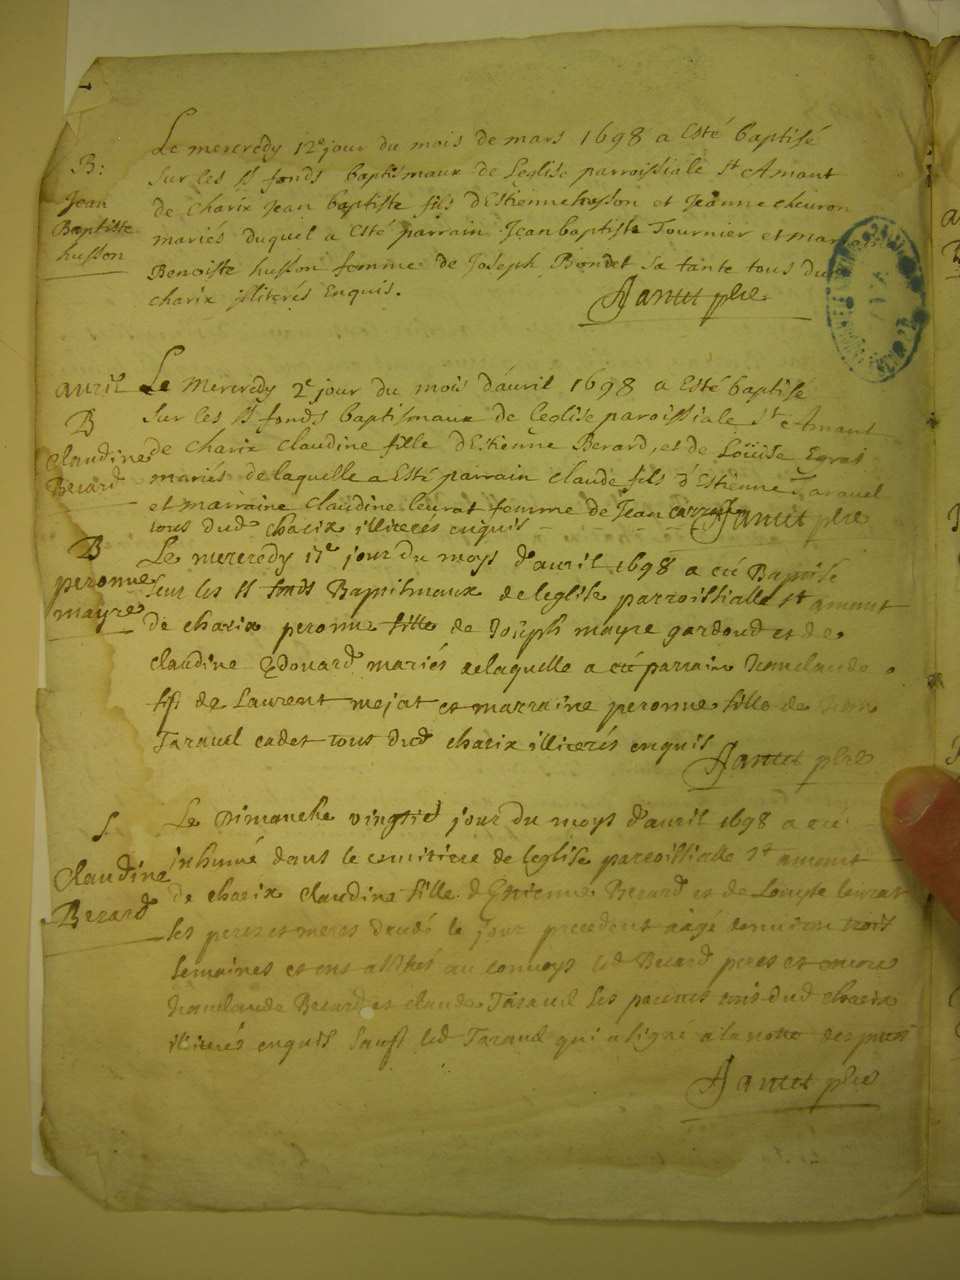 Le mercredy 12e jour du mois de mars 1698 a esté baptisé
B:
sur les sts fonds baptismaux de Leglise parroissiale st Amant
Jean
de charix Jean baptiste fils dEstienne husson et Jeanne cheuron
Baptiste
mariés duquel a esté parrain Jean baptiste Tournier et
husson
Benoiste husson femme de Joseph Bondet sa tante tous du
charix illiterés Enquis.
Janet pbre
auril
Le Mercredy 2e jour du mois dauril 1698 a Esté baptisé
B
sur les sts fonds baptismaux de leglise paroissiale st Amant
Claudine
de charix claudine fille dEstienne Berard, et de Loüise
Berard
mariés de laquelle a Esté parrain claude fils d'Estienne Tarauel
et marraine claudine leurat femme de Jean
tous dud charix illiteres enquis
Janet pbre
B
Le mercredy jour du moys dauril 1698 a été Baptise
peronne
sur les sts fonds Baptismaux de leglise parroissialle st amant
mayre
de charix peronne fille de Joseph mayre gardoud et de
claudine Edouard mariés delaquelle a été parrain
fils de Laurent mejat et marraine peronne fille de
Tarauel cadet tous dud charix illiterés enquis
Janet pbre
S
Le Dimanche vingtie jour du moys dauril 1698 a été
inhumé dans le cemitiere de leglise parroissialle st amant
Claudine
de charix claudine fille dEstienne Berard et de leurat
Berard
les peres et meres decedé le jour precedent aagé denuiron trois
semaines et ont assistés au conuoys led Berard peres et encore
Berard et claude Tarauel les parents tous dud charix
illiterés enquis sauf led Tarauel qui a signé a la notte
Janet pbre